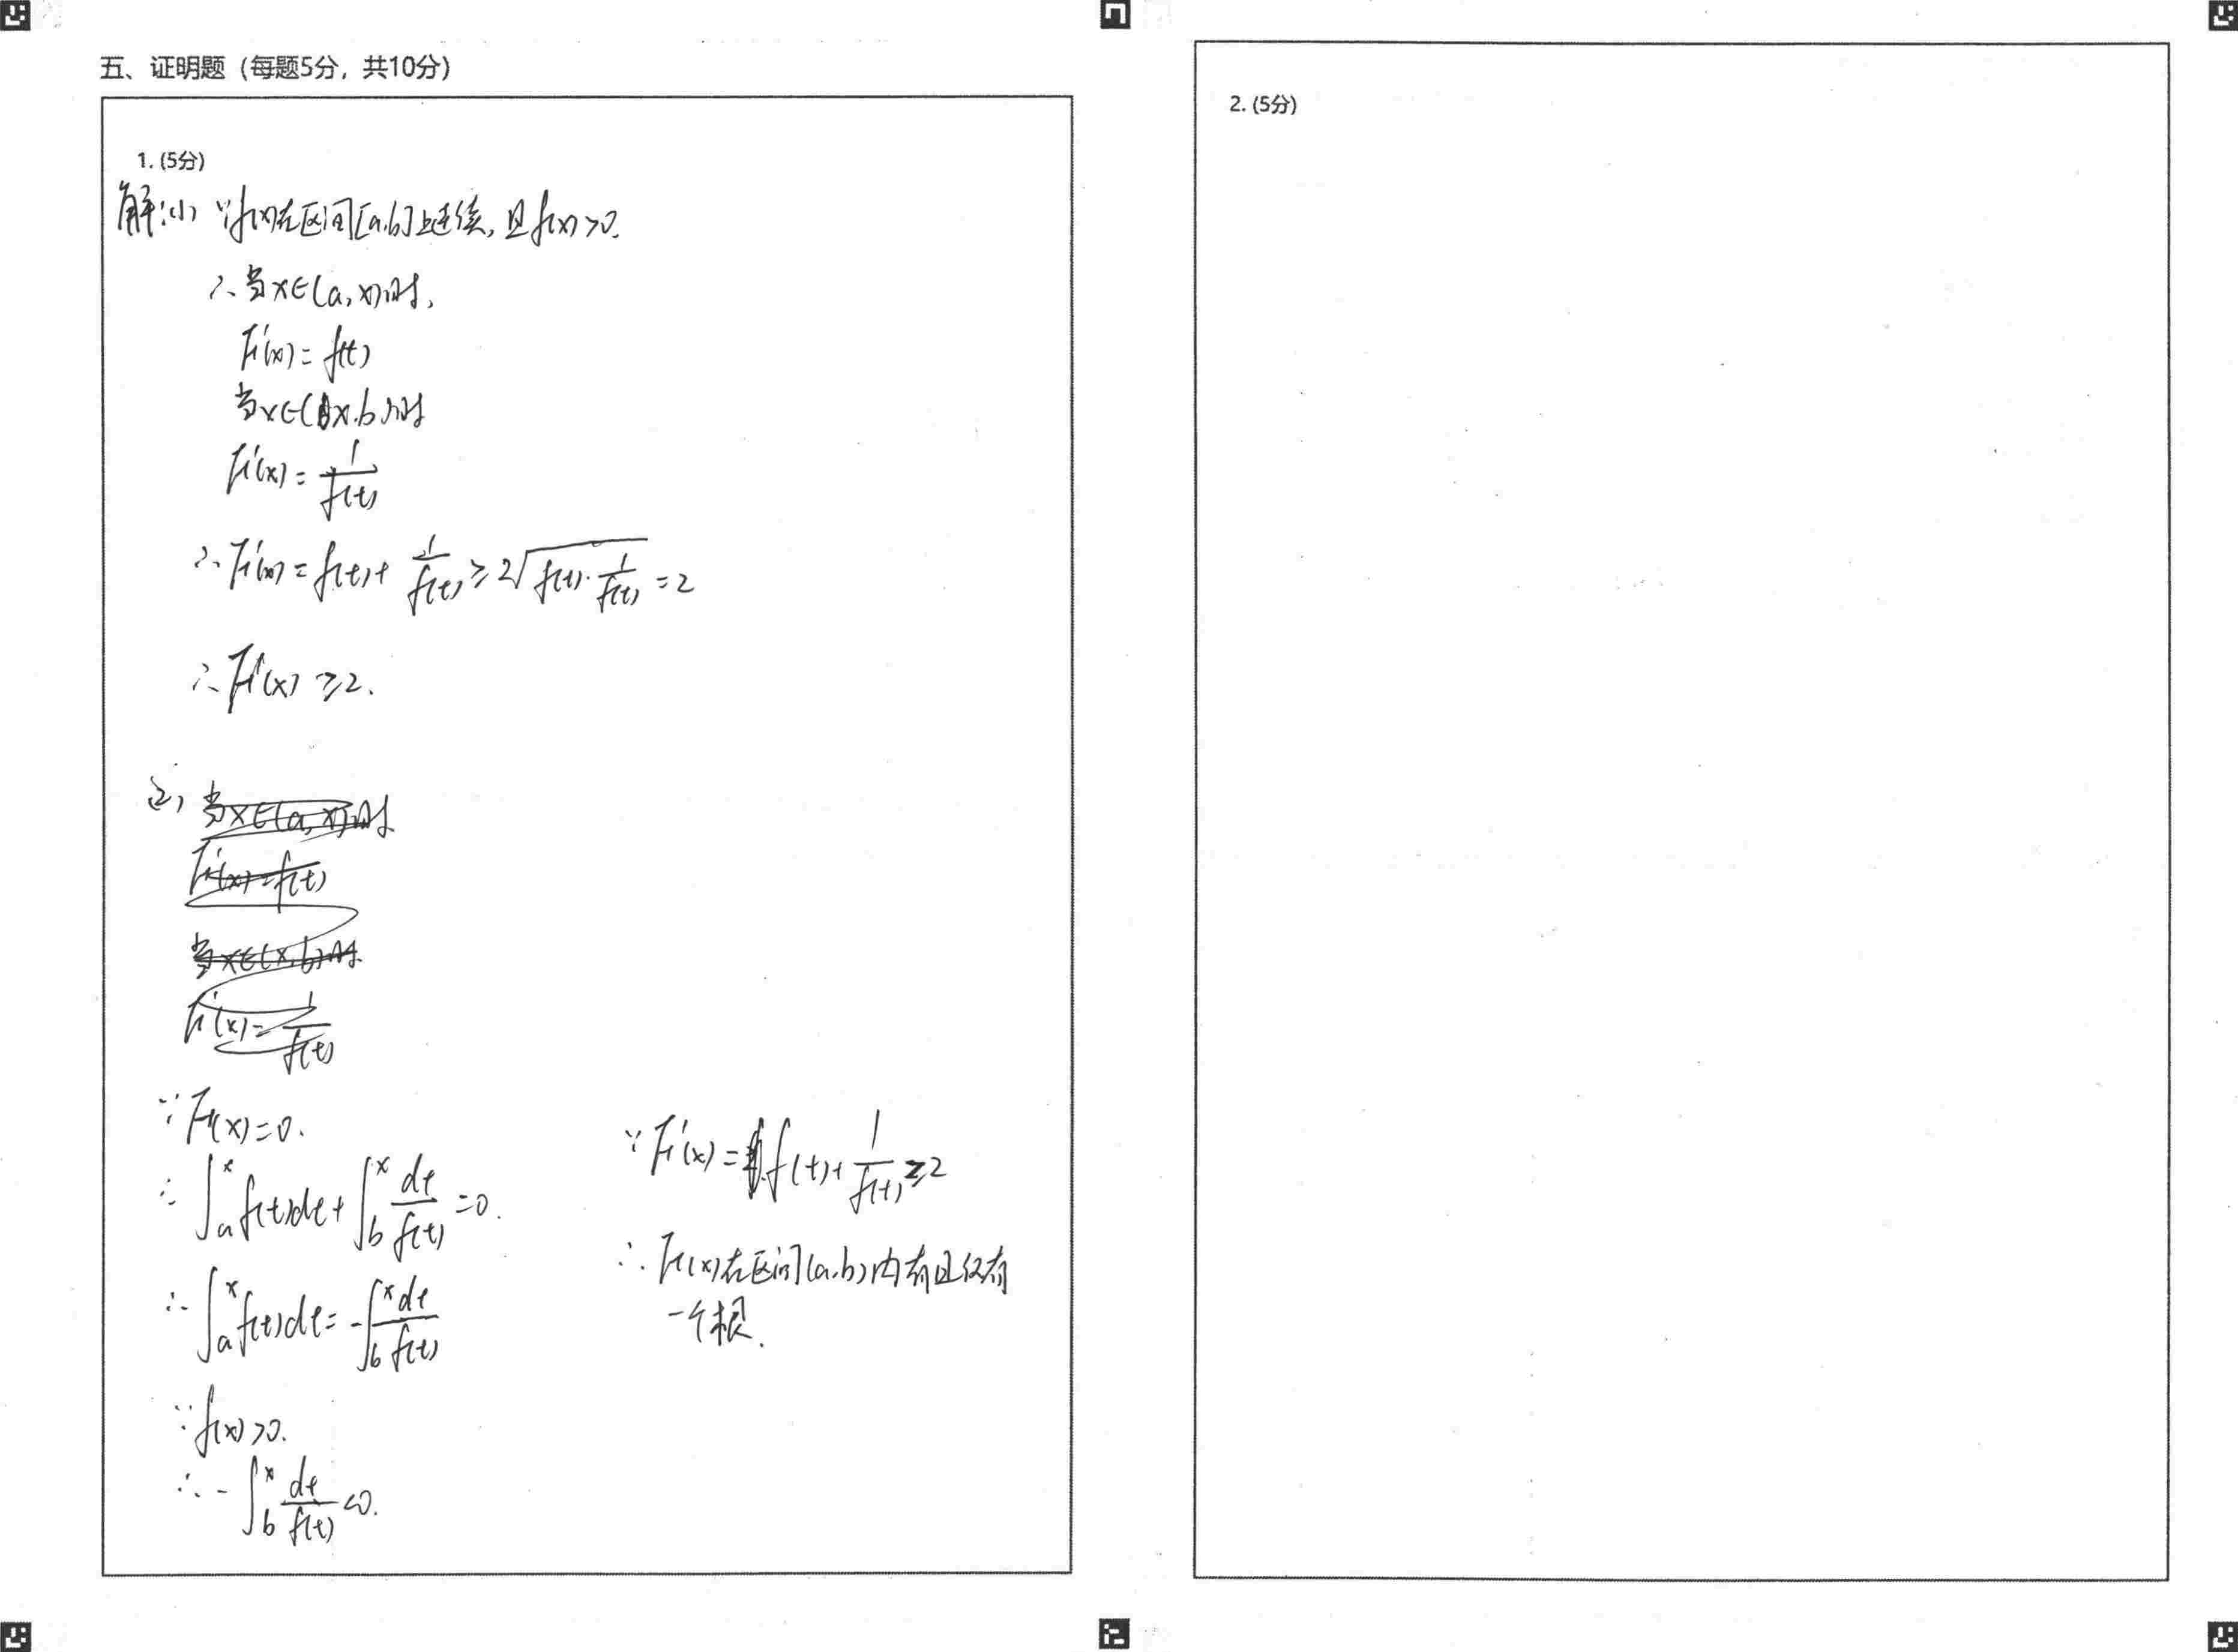 五、证明题（每题5分，共10分）
1. (5分)
解:(1) ∵f(x)在区间[a,b]上连续,且f(x)>0.
∴当x∈(a,x)时,
F'(x)=f(t)
当x∈(x,b)时
F'(x)=1/f(t)
∴F'(x)=f(t)+1/f(t)≥2√(f(t)·1/f(t))=2
∴F'(x)≥2.
(2) 当x∈(a,x)时
F'(x)=f(t)
当x∈(x,b)时
F'(x)=1/f(t)
∵F(x)=0.
∴∫_a^x f(t)dt+∫_b^x dt/f(t)=0.
∴∫_a^x f(t)dt=-∫_b^x dt/f(t)
∵f(x)>0.
∴-∫_b^x dt/f(t)<0.
∵F'(x)=f(t)+1/f(t)≥2
∴F(x)在区间(a,b)内有且仅有
一个根.
2. (5分)